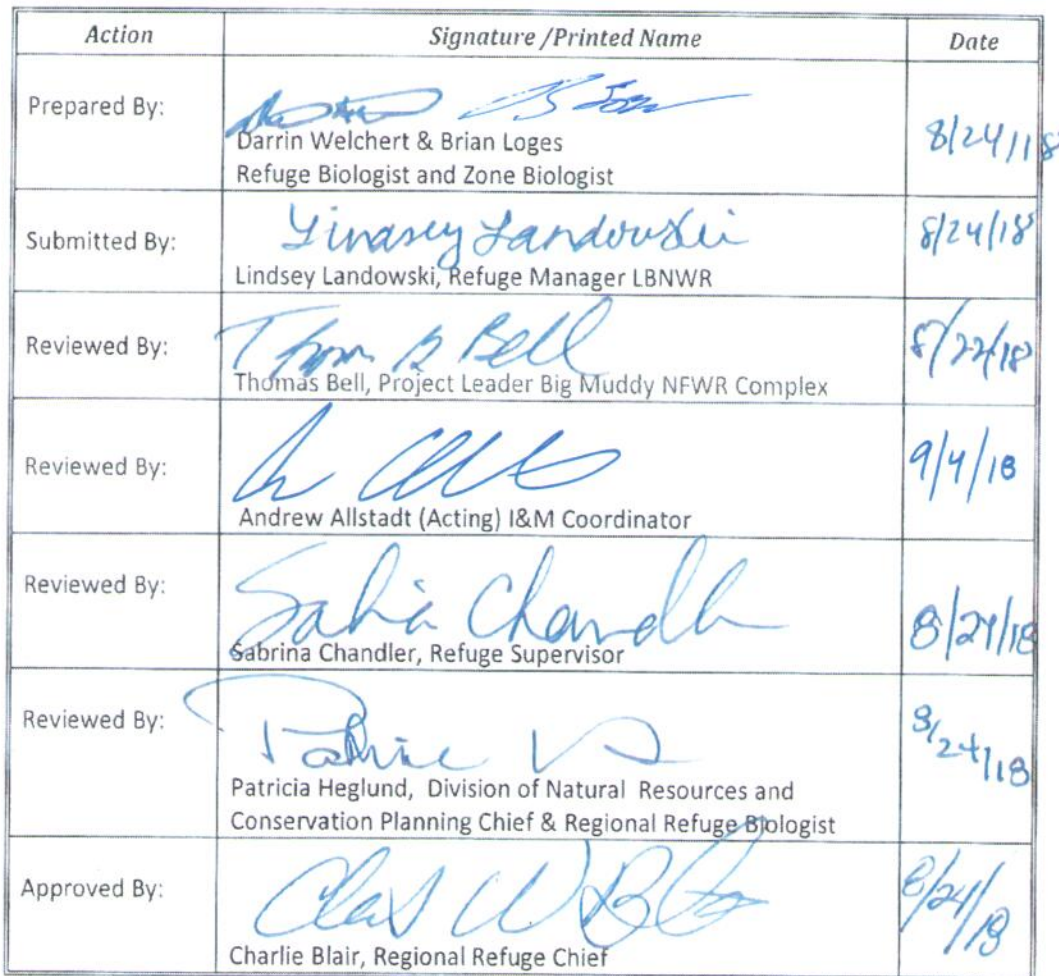 Action Signature /Printed Name Date
Prepared By:
Darrin Welchert & Brian Loges
Refuge Biologist and Zone Biologist
8/24/18
Submitted By: Lindsey Landowski 8/24/18
Lindsey Landowski, Refuge Manager LBNWR
Reviewed By: Thom Bell 8/22/18
Thomas Bell, Project Leader Big Muddy NFWR Complex
Reviewed By: 9/4/18
Andrew Allstadt (Acting) I&M Coordinator
Reviewed By:
Sabrina Chandler, Refuge Supervisor
Reviewed By: 8/24/18
Patricia Heglund, Division of Natural Resources and
Conservation Planning Chief & Regional Refuge Biologist
Approved By: 8/24/18
Charlie Blair, Regional Refuge Chief